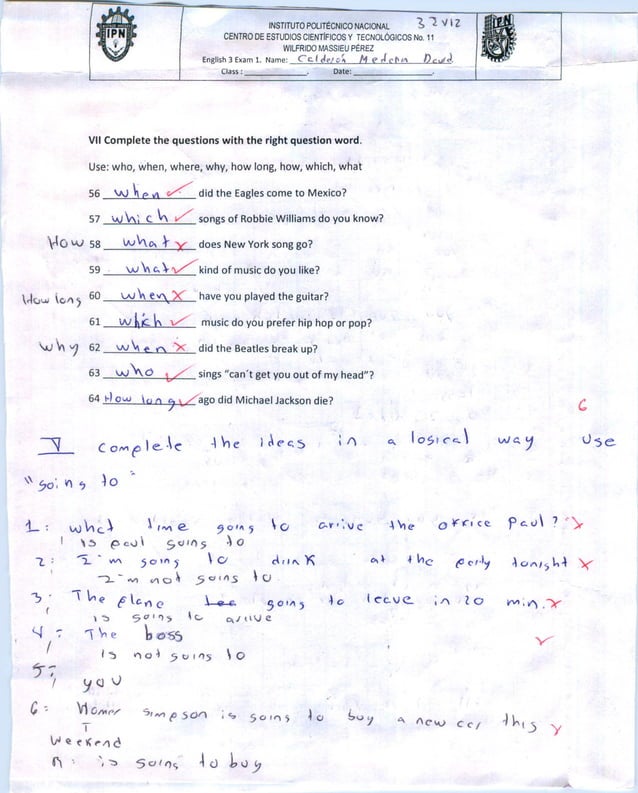 INSTITUTO POLITÉCNICO NACIONAL 3 IV12
CENTRO DE ESTUDIOS CIENTÍFICOS Y TECNOLÓGICOS No. 11
WILFRIDO MASSIEU PÉREZ
IPN
IPN
English 3 Exam 1. Name: Calderón Medina David
Class : Date:
VII Complete the questions with the right question word.
Use: who, when, where, why, how long, how, which, what
56 when did the Eagles come to Mexico?
57 which songs of Robbie Williams do you know?
How 58 what does New York song go?
59 what kind of music do you like?
How long 60 when have you played the guitar?
61 which music do you prefer hip hop or pop?
why 62 when did the Beatles break up?
63 who sings "can´t get you out of my head"?
64 How long ago did Michael Jackson die?
6
V complete the ideas in a logical way use
"going to"
1: what time going to arrive the office Paul?
is paul going to
2: I'm going to drink at the party tonight
I'm not going to
3: The plane going to leave in 20 min.
is going to arrive
4: The boss
is not going to
5:
you
6: Homer simpson is going to buy a new car this
weekend
is going to buy